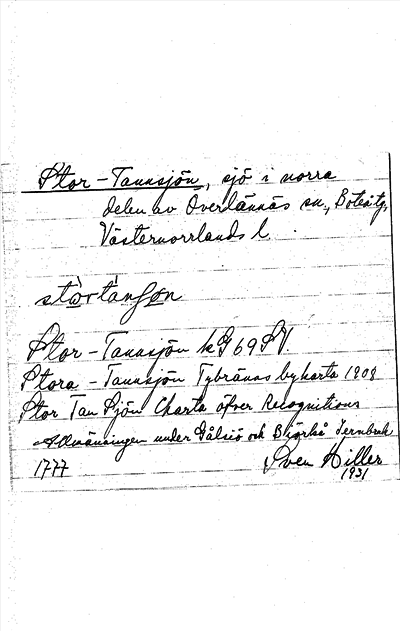 Stor-Tannsjön, sjö i norra
delen av Överlännäs sn., Boteå tg,
Västernorrlands l.
Stor-Tannsjön k G 69 SV.
Stora-Tannsjön Tybränas bykarta 1908
Stor Tan Sjön Charta öfver Recognitions
Allmänningen under Gålsiö och Björkå Jernbruk
1777
Sven Hiller
1931